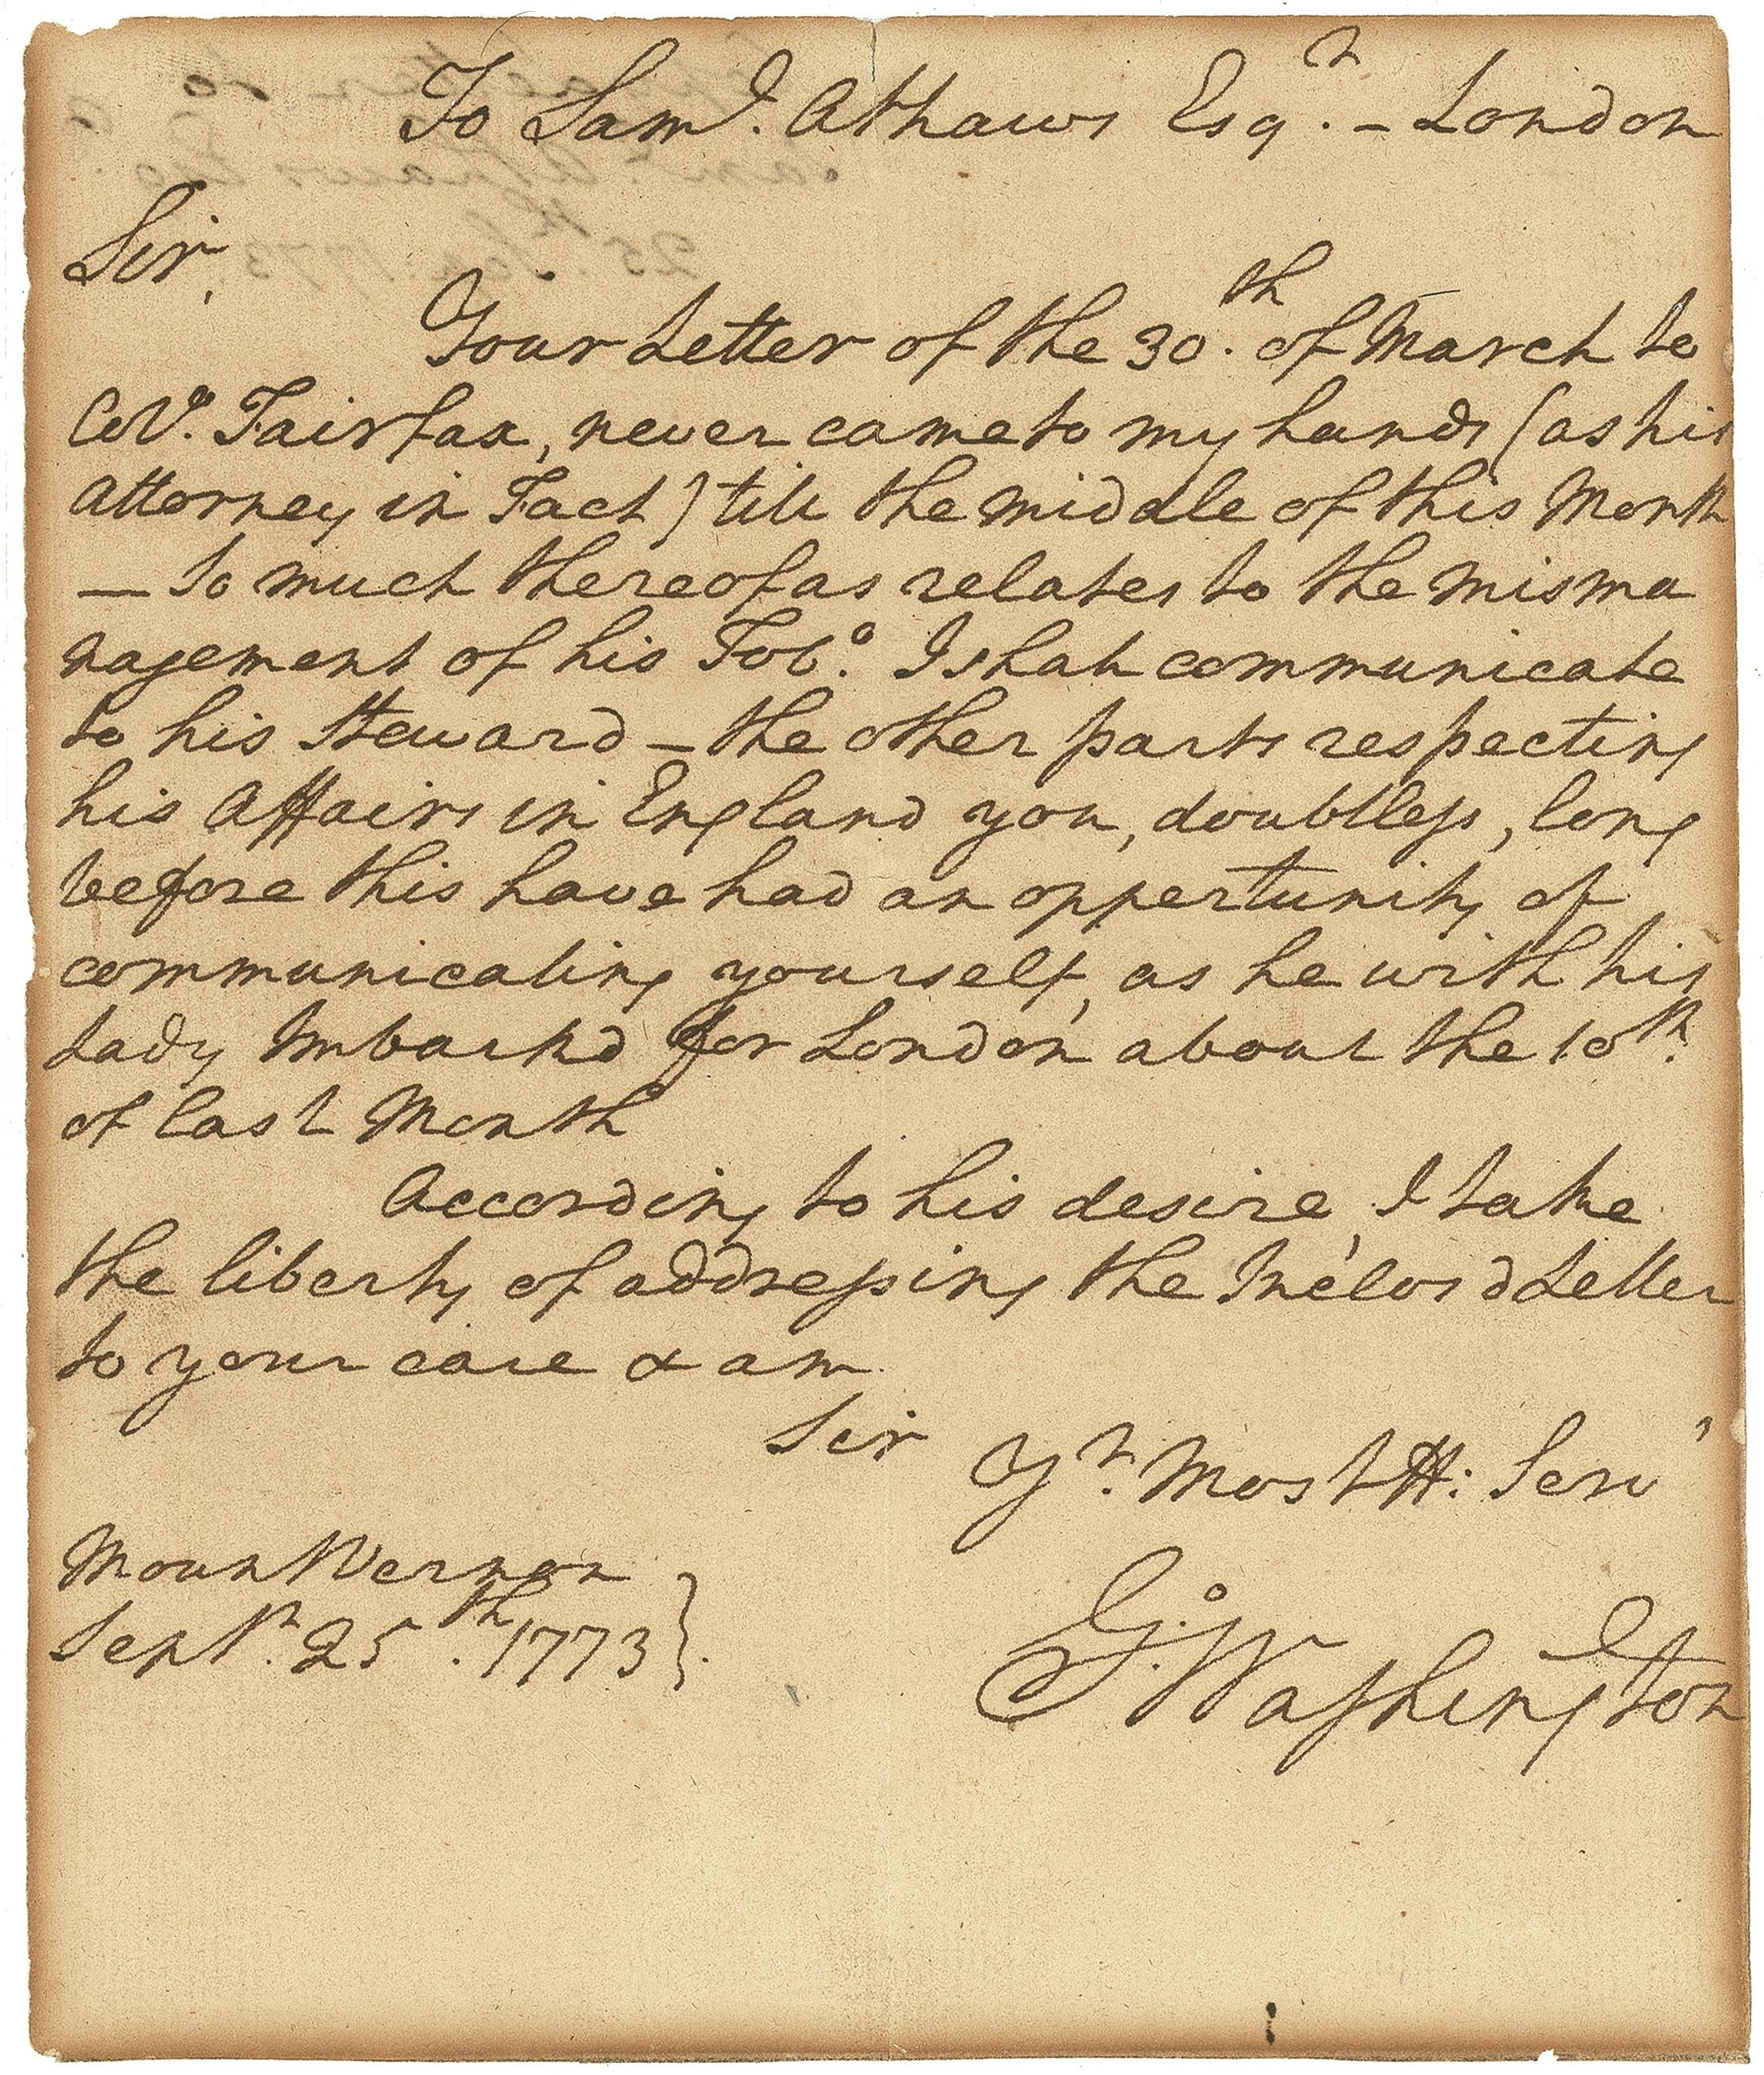 To Sam.l Athaws Esq.r – London
Sir,
Your Letter of the 30.th of March to
Col.o Fairfax, never came to my hands (as his
Attorney in Fact) till the middle of this Month
— So much thereof as relates to the misma
nagement of his Tob.o I shall communicate
to his Steward – the other parts respecting
his Affairs in England you, doubtless, long
before this have had an oppertunity of
communicating yourself, as he with his
Lady Imbarkd for London about the 10th.
of last Month
According to his desire, I take
the liberty of addressing the Inclosd Letter
to your care & am
Sir
Yr. Most H: Servt
Mount Vernon
Septr. 25th. 1773
Go: Washington
25th Sep. 1773